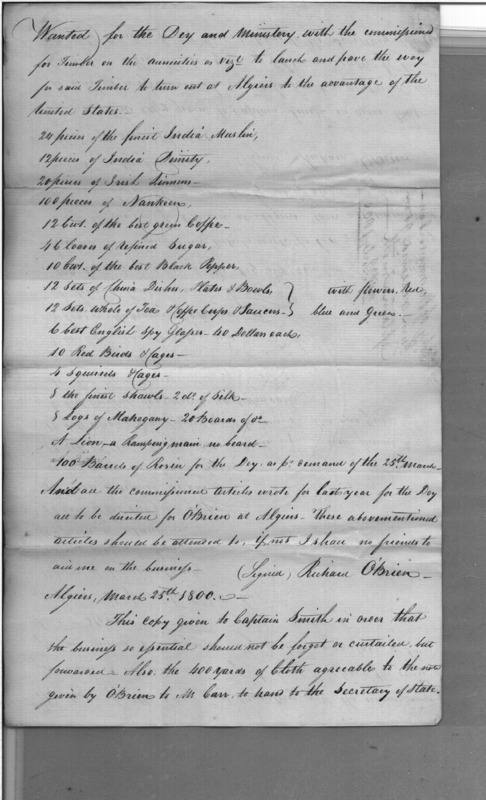 Wanted for the Dey and Ministery, with the commissions
for Timber on the annuities as vizt to lanch and pave the way
for said Timber to turn out at Algiers to the advantage of the
United States.
24 pieces of the finest India Muslin,
12 pieces of India Dimity,
20 pieces of Irish Linnens—
100 pieces of Nankeen,
12 Cwt. of the best green Coffee—
46 loaves of refined Sugar,
10 Cwt. of the best Black Pepper,
12 Sets of China Dishes, Plates & Bowls } with flowers, Red,
12 Sets whole of Tea & Coffee Cups & Saucers } blue and Green.—
6 best English Spy Glasses— 40 Dollars each,
10 Red Birds & Cages—
4 Squirels & Cages—
8 the finest Shawls— 2 do. of Silk—
8 Logs of Mahogany— 20 Boards of do
A Lion— a Ramping main no beard—
100 Barrels of Rosin for the Dey, as pr. demand of the 25th March
And all the commissioned articles wrote for last year for the Dey
are to be directed for O'Brien at Algiers— These abovementioned
articles should be attended to, if not I shall no friends to
aid me on the business— (Signed) Richard O'Brien—
Algiers, March 25th 1800.
This copy given to Captain Smith in order that
the business so essential should not be forgot or curtailed, but
forwarded— Also, the 400 yards of Cloth agreeable to the note
given by O'Brien to M. Carr, to hand to the Secretary of State.